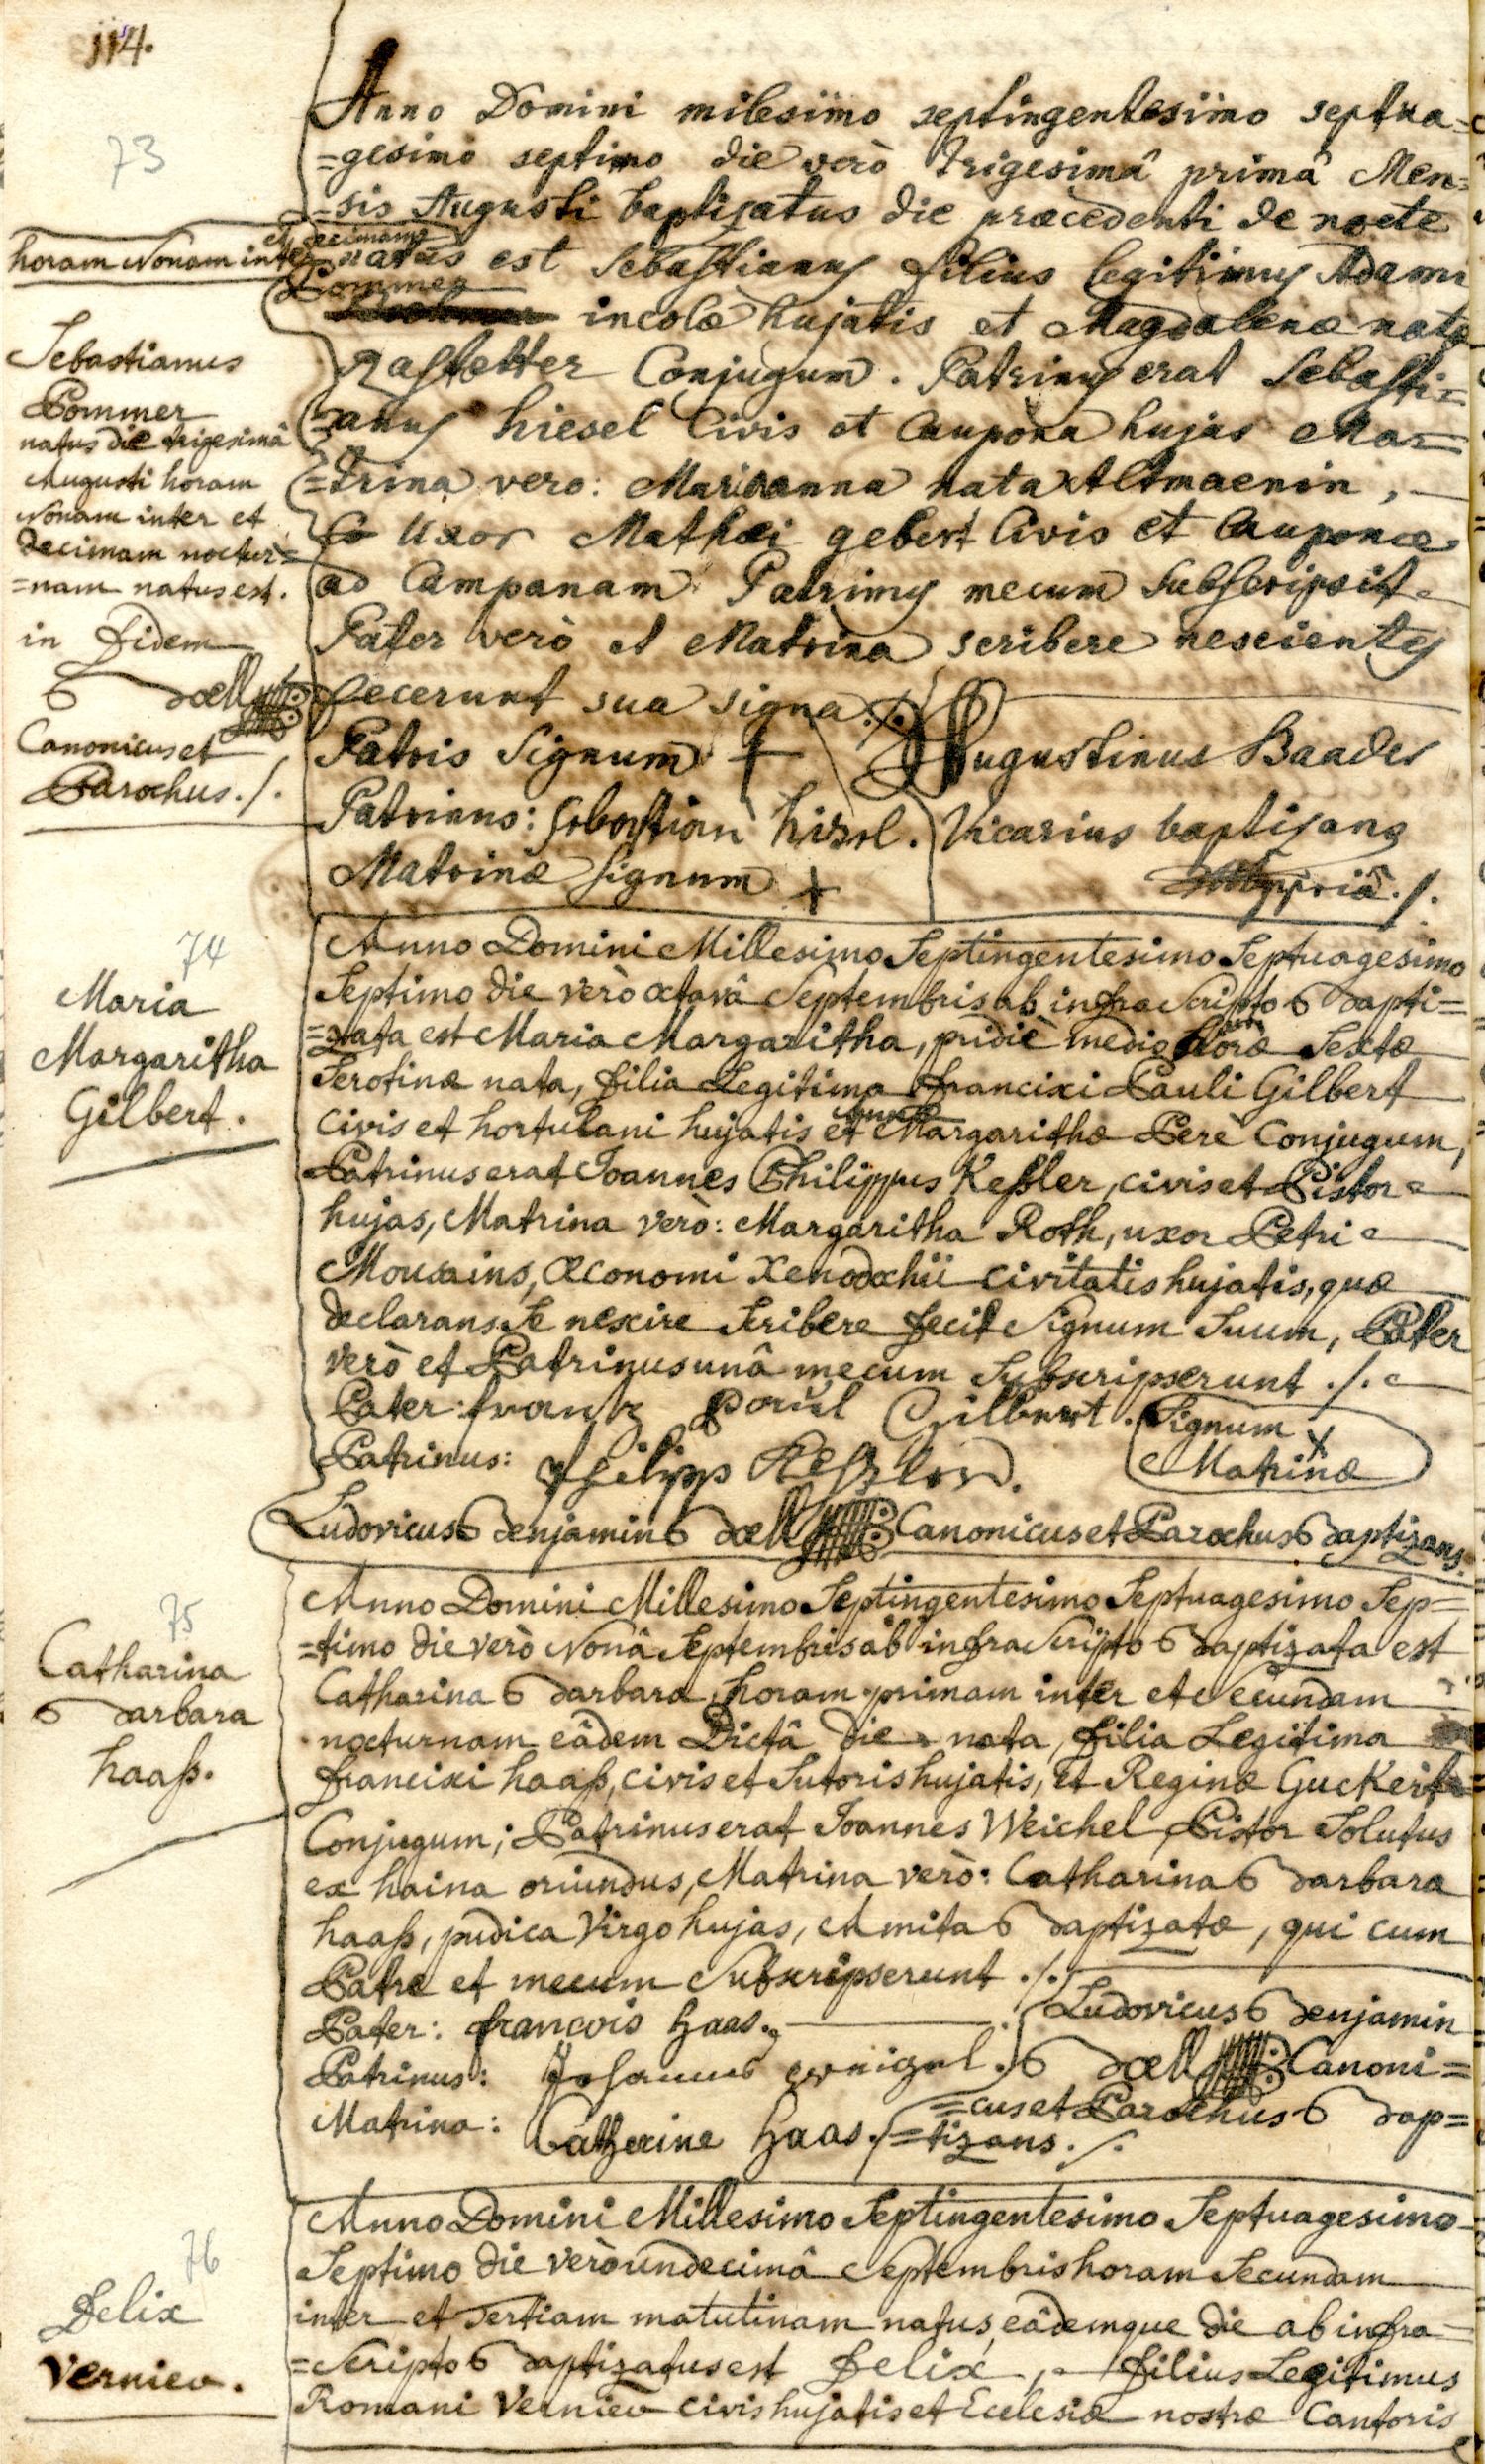 114.
73
Anno Domini milesimo septingentesimo septua=
=gesimo septimo die verò trigesimâ primâ Men=
=sis Augusti baptisatus die præcedenti de nocte
horam Nonam inter et decimam
natus est Sebastianus filius legitimus Adami
Pommer
incolæ hujatis et Magdalenæ natæ
Rastetter Conjugum. Patrinus erat Sebasti=
=anus hiesel Civis et Caupona hujas Ma=
=trina vero: Marianna nata Altmaenin,
Uxor Mathæi gebert Civis et Cauponæ
ad Campanam. Patrinus mecum Subscripsit
Pater verò et Matrina scribere nescientes
fecerunt sua signa ./.
Patris Signum +
Augustinus Baader
Patrinus: Sebastian hissel.
Vicarius baptisans
Matrinæ signum +
mppriâ ./.
Sebastianus
Pommer
natus die trigesimâ
Augusti horam
Nonam inter et
decimam noctur=
=nam natus est.
in fidem
Bœll
Canonicus et
Parochus ./.
74
Maria
Margaritha
Gilbert.
Anno Domini Millesimo Septingentesimo Septuagesimo
Septimo die verò octavâ Septembris ab infra Scripto Bapti=
=zata est Maria Margaritha, pridiè mediâ horæ Sextæ
Serotinæ nata, filia Legitima francisci Pauli Gilbert
civis et hortulani hujatis et Margarithæ Perè Conjugum,
Patrinus erat Joannes Philippus Keßler, civis et Pistor
hujas, Matrina verò: Margaritha Roth, uxor Petri
Mousains, Œconomi Xenodochii civitatis hujatis, quæ
declarans Se nescire Scribere fecit Signum Suum, Pater
verò et Patrinus unâ mecum Subscripserunt ./.
Pater: frantz Paul Gilbert.
Signum x
Matrinæ
Patrinus: Philipp Keßler.
Ludovicus Benjamin Bœll Canonicus et Parochus Baptizans.
75
Catharina
Barbara
haaß.
Anno Domini Millesimo Septingentesimo Septuagesimo Sep=
=timo die verò Nonâ Septembris ab infra Scripto Baptizata est
Catharina Barbara, horam primam inter et Secundam
nocturnam eâdem Dictâ die nata, filia Legitima
francisci haaß, civis et Sutoris hujatis, et Reginæ Guckert
Conjugum; Patrinus erat Joannes Weichel Pistor Solutus
ex haina oriundus, Matrina verò: Catharina Barbara
haaß, pudica Virgo hujas, Amita Baptizatæ, qui cum
Patre et mecum Subscripserunt ./.
Pater: francois haas.
Ludovicus Benjamin
Patrinus: Johannes weigel.
Bœll Canoni=
=cus et Parochus Bap=
Matrina: Catherine haas.
=tizans ./.
76
Felix
Vernieu.
Anno Domini Millesimo Septingentesimo Septuagesimo
Septimo die verò undecimâ Septembris horam Secundam
inter et Tertiam matutinam natus, eâdemque die ab infra=
=Scripto Baptizatus est Felix, filius Legitimus
Romani Vernieu civis hujatis et Ecclesiæ nostræ Cantoris